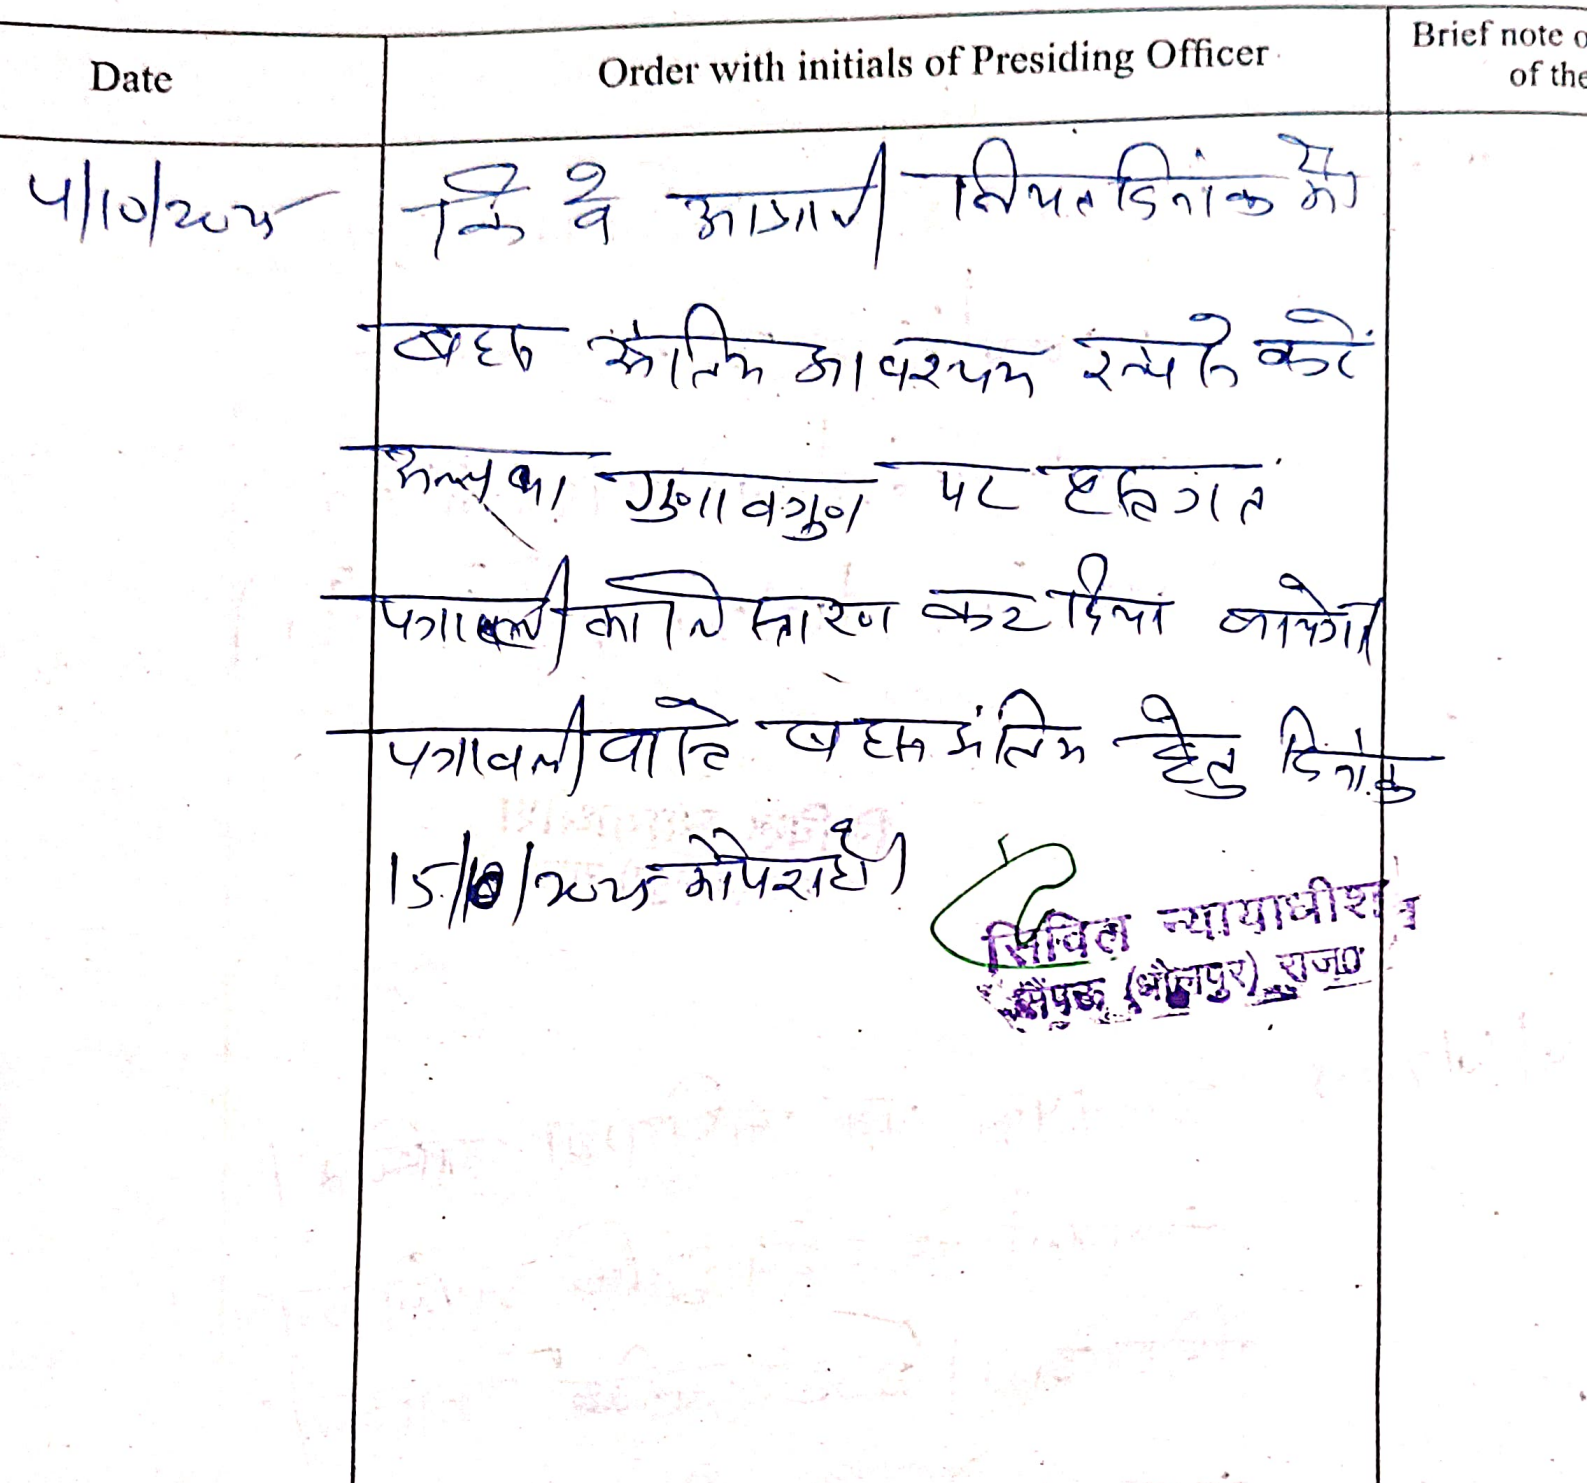 Date
Order with initials of Presiding Officer
Brief note o
of the
4/10/2025
कि वे आगामी नियत दिनांक को
बहस अंतिम आवश्यक रूप से करें
अन्यथा गुणावगुण पर
पत्रावली का निस्तारण कर दिया जायेगा
पत्रावली वास्ते बहस अंतिम हेतु दिनांक
15/10/2025 को पेश हो।
सिविल न्यायाधीश
सैंपऊ (धौलपुर) राज0